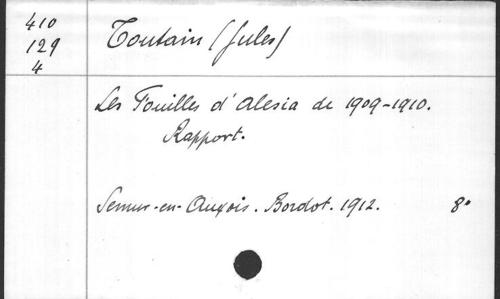 410
129
4
Toutain (Jules)
Les Fouilles d'Alesia de 1909-1910.
Rapport.
Semur-en-Auxois. Bordot. 1912. 8°